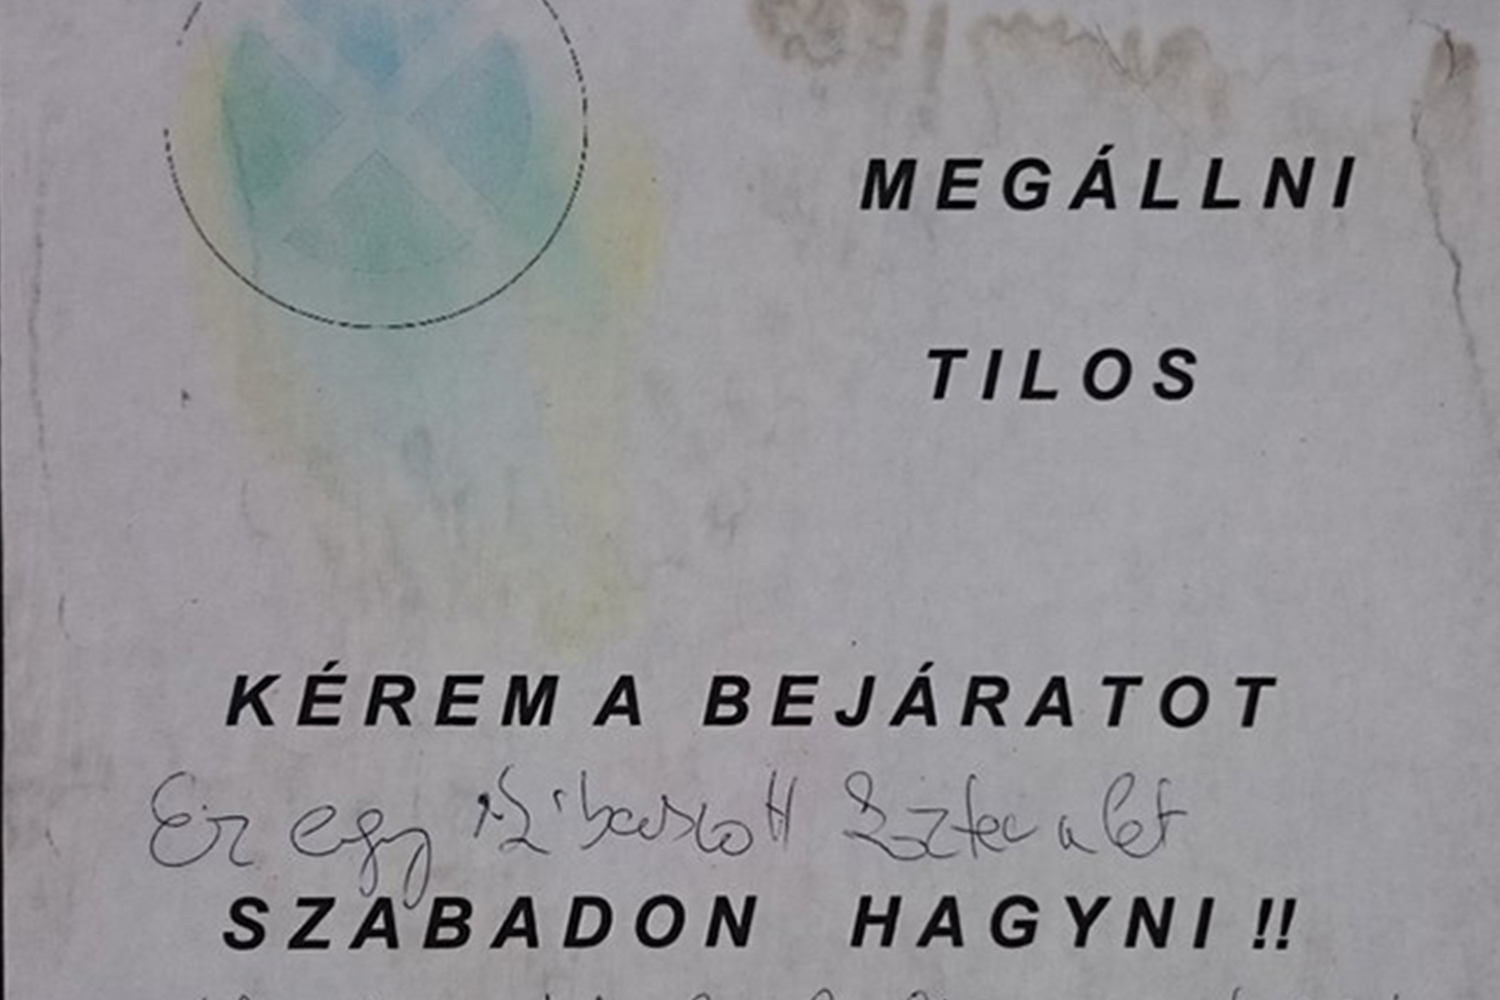 MEGÁLLNI
TILOS
KÉREM A BEJÁRATOT
Ez egy
SZABADON HAGYNI !!